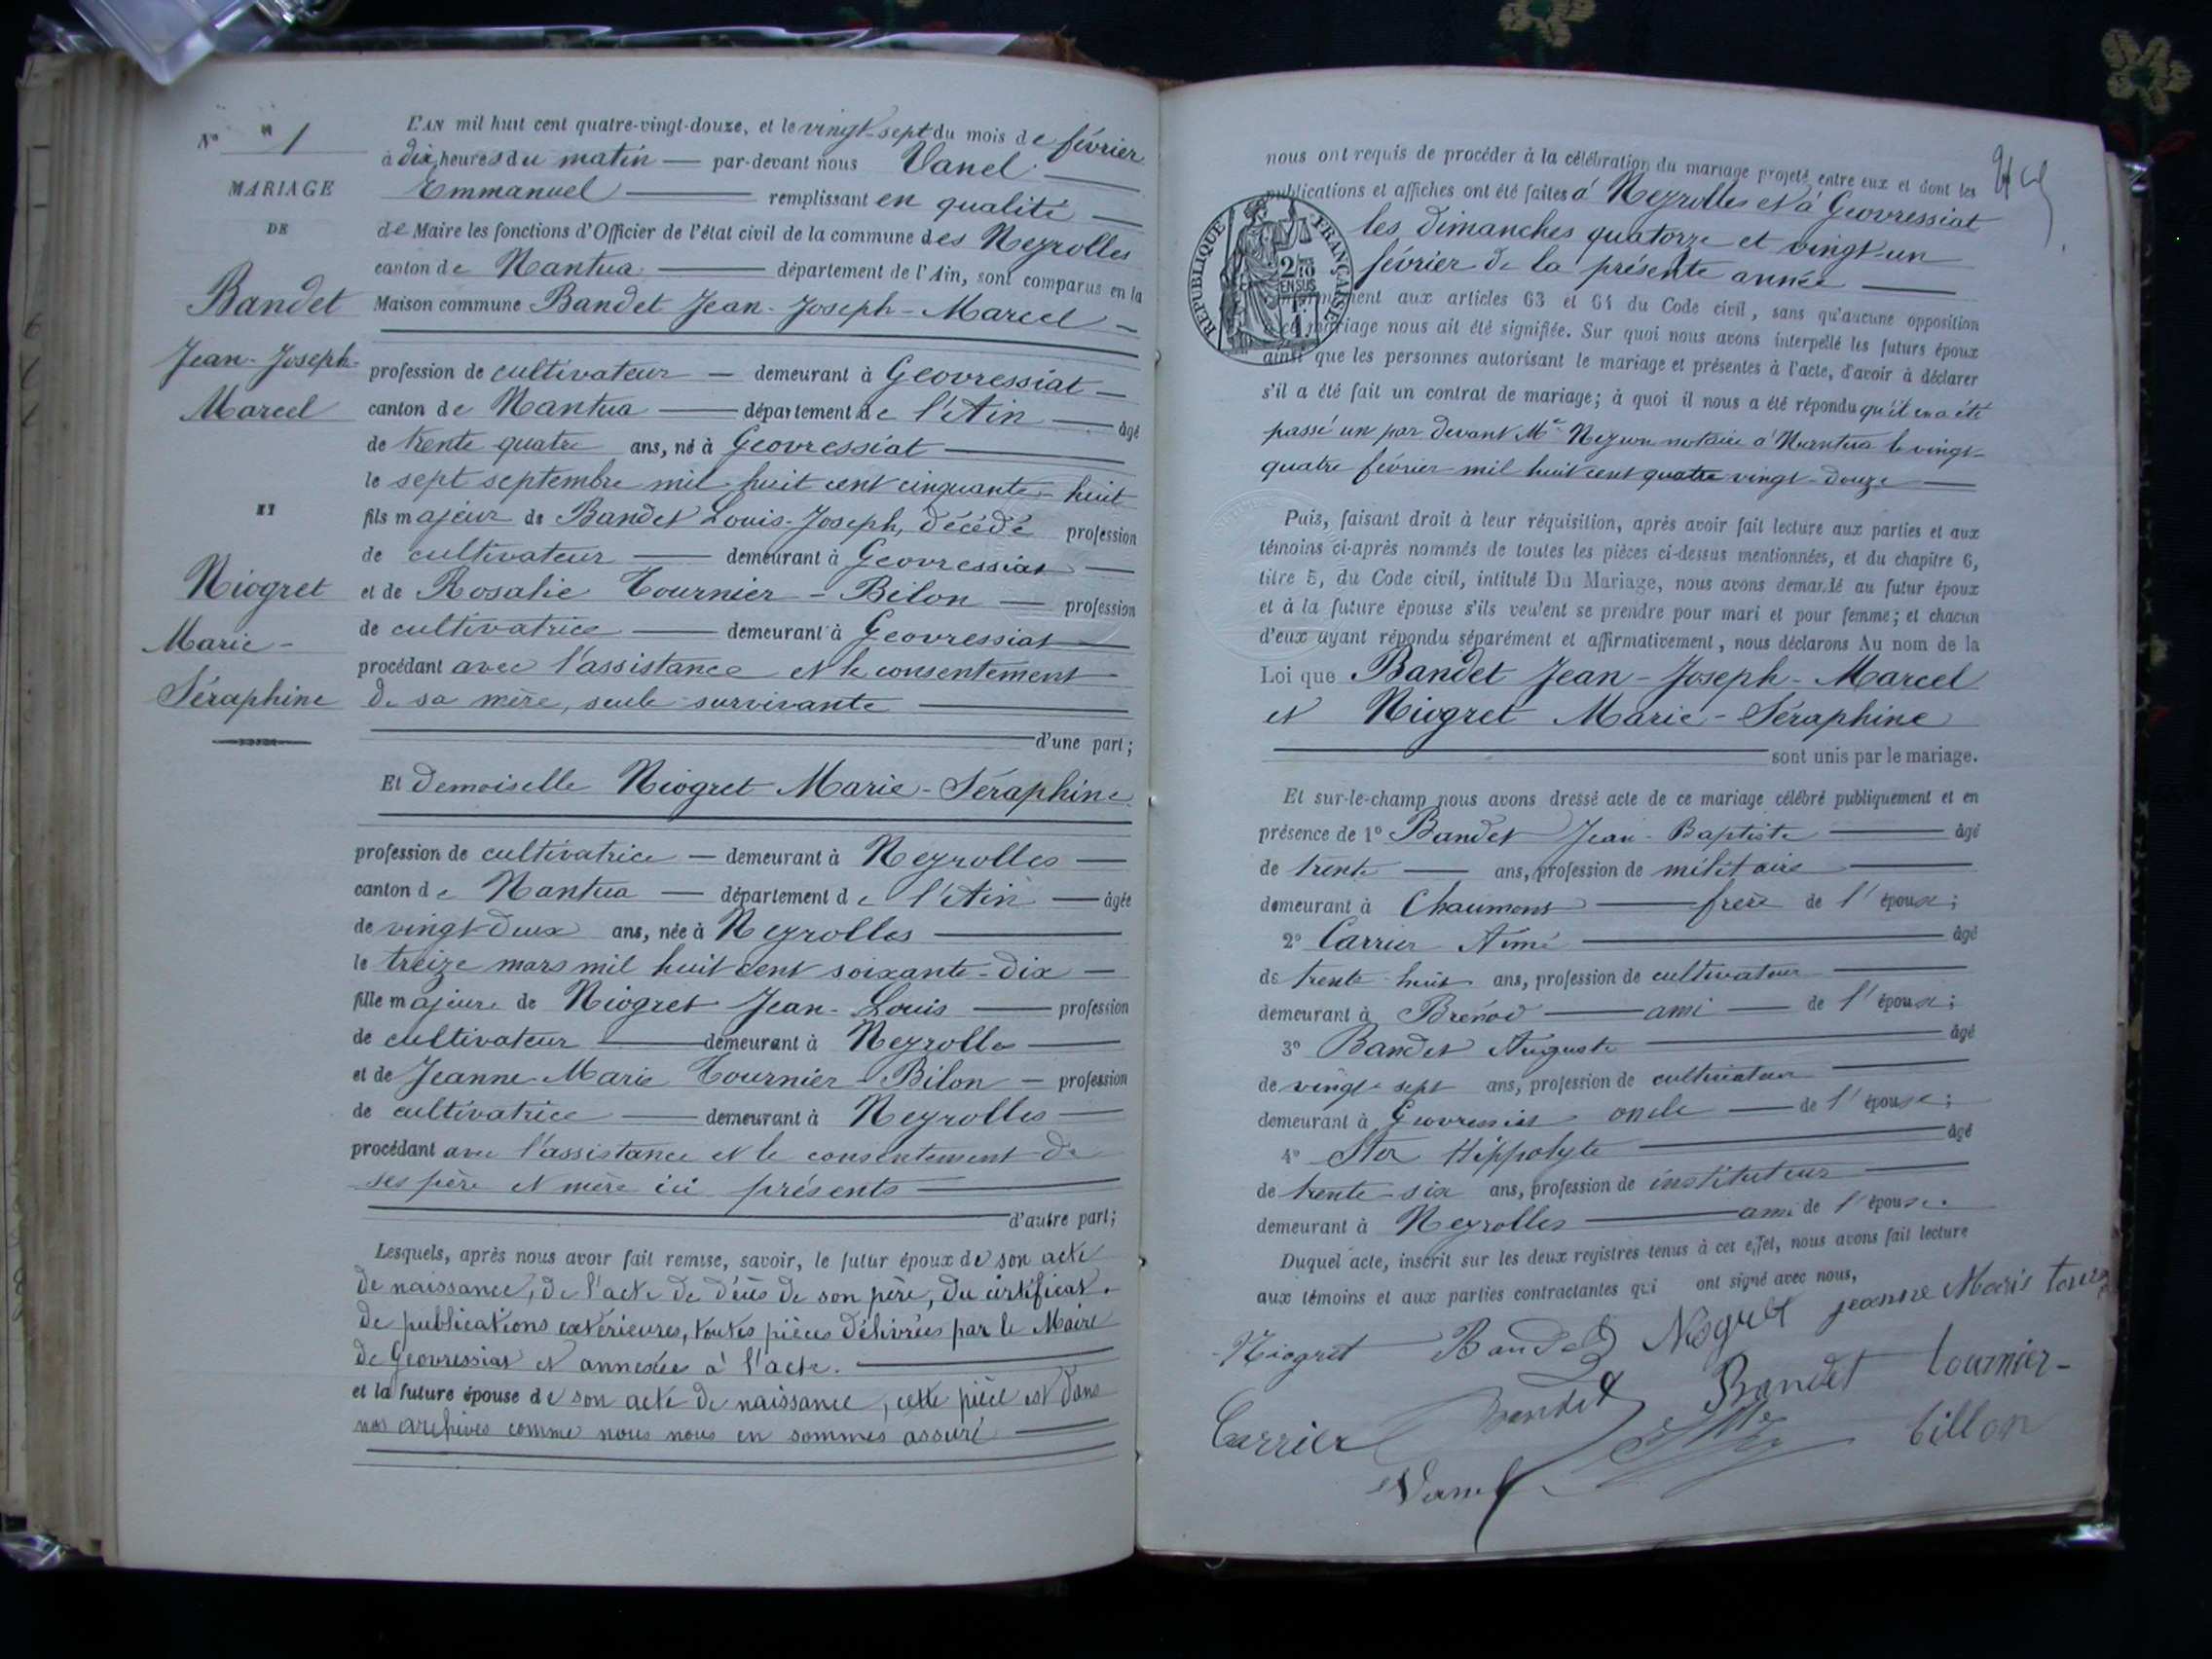 N° 1
MARIAGE
DE
Bandet
Jean-Joseph-
Marcel
ET
Niogret
Marie-
Séraphine
L'AN mil huit cent quatre-vingt-douze, et le vingt-sept du mois de février
à dix heures du matin — par-devant nous Vanel
Emmanuel — remplissant en qualité
de Maire les fonctions d'Officier de l'état civil de la commune des Neyrolles
canton de Nantua — département de l'Ain, sont comparus en la
Maison commune Bandet Jean-Joseph-Marcel
profession de cultivateur — demeurant à Geovressiat
canton de Nantua — département de l'Ain — âgé
de trente quatre ans, né à Geovressiat
le sept septembre mil huit cent cinquante-huit
fils majeur de Bandet Louis-Joseph, décédé profession
de cultivateur — demeurant à Geovressiat
et de Rosalie Tournier-Bilon — profession
de cultivatrice — demeurant à Geovressiat
procédant avec l'assistance et le consentement
de sa mère, seule survivante
d'une part;
Et Demoiselle Niogret Marie-Séraphine
profession de cultivatrice — demeurant à Neyrolles
canton de Nantua — département de l'Ain — âgée
de vingt-deux ans, née à Neyrolles
le treize mars mil huit cent soixante-dix
fille majeure de Niogret Jean-Louis — profession
de cultivateur — demeurant à Neyrolles
et de Jeanne-Marie Tournier-Bilon — profession
de cultivatrice — demeurant à Neyrolles
procédant avec l'assistance et le consentement de
ses père et mère ici présents
d'autre part;
Lesquels, après nous avoir fait remise, savoir, le futur époux de son acte
de naissance, de l'acte de décès de son père, du certificat
de publications extérieures, toutes pièces délivrées par le Maire
de Geovressiat et annexées à l'acte.
et la future épouse de son acte de naissance, cette pièce est dans
nos archives comme nous nous en sommes assuré
nous ont requis de procéder à la célébration du mariage projeté entre eux et dont les
publications et affiches ont été faites à Neyrolles et à Geovressiat
les dimanches quatorze et vingt-un
février de la présente année
conformément aux articles 63 et 64 du Code civil, sans qu'aucune opposition
à ce mariage nous ait été signifiée. Sur quoi nous avons interpellé les futurs époux
ainsi que les personnes autorisant le mariage et présentes à l'acte, d'avoir à déclarer
s'il a été fait un contrat de mariage; à quoi il nous a été répondu qu'il en a été
passé un par devant Me notaire à Nantua le vingt-
quatre février mil huit cent quatre vingt-douze
RÉPUBLIQUE FRANÇAISE
2/10 EN SUS
Puis, faisant droit à leur réquisition, après avoir fait lecture aux parties et aux
témoins ci-après nommés de toutes les pièces ci-dessus mentionnées, et du chapitre 6,
titre 5, du Code civil, intitulé Du Mariage, nous avons demandé au futur époux
et à la future épouse s'ils veulent se prendre pour mari et pour femme; et chacun
d'eux ayant répondu séparément et affirmativement, nous déclarons Au nom de la
Loi que Bandet Jean-Joseph-Marcel
et Niogret Marie-Séraphine
sont unis par le mariage.
Et sur-le-champ nous avons dressé acte de ce mariage célébré publiquement et en
présence de 1° Bandet Jean-Baptiste — âgé
de trente — ans, profession de militaire
demeurant à Chaumont — frère de l'époux;
2° Carrier Aimé — âgé
de trente-huit ans, profession de cultivateur
demeurant à Brénod — ami — de l'époux;
3° Bandet Auguste — âgé
de vingt-sept ans, profession de cultivateur
demeurant à Geovressiat oncle — de l'épouse;
4° Hippolyte — âgé
de trente-six ans, profession de instituteur
demeurant à Neyrolles — ami de l'épouse.
Duquel acte, inscrit sur les deux registres tenus à cet effet, nous avons fait lecture
aux témoins et aux parties contractantes qui ont signé avec nous,
Niogret Bandet Niogret jeanne Marie
Bandet Bandet tournier-
Carrier billon
Vanel